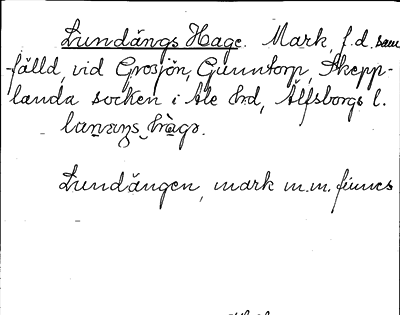 Lundängs Hage. Mark, f.d. sam
-fälld, vid Grosjön, Gunntorp, Skepp-
landa socken i Ale Hrd, Älfsborgs l.
Lundängen, mark m.m. finnes